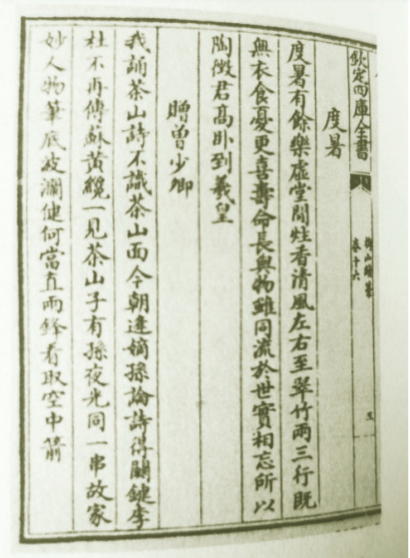 欽定四庫全書
卷十六
度暑
度暑有餘樂虛堂閒炷香清風左右至翠竹兩三行既
無衣食憂更喜壽命長與物雖同流於世實相忘所以
陶徵君高卧到羲皇
贈曾少卿
我誦茶山詩不識茶山面今朝逢嫡孫論詩得關鍵李
杜不再傳蘇黃纔一見茶山子有孫夜光同一串故家
妙人物筆底波瀾健何當直兩鋒着取空中箭